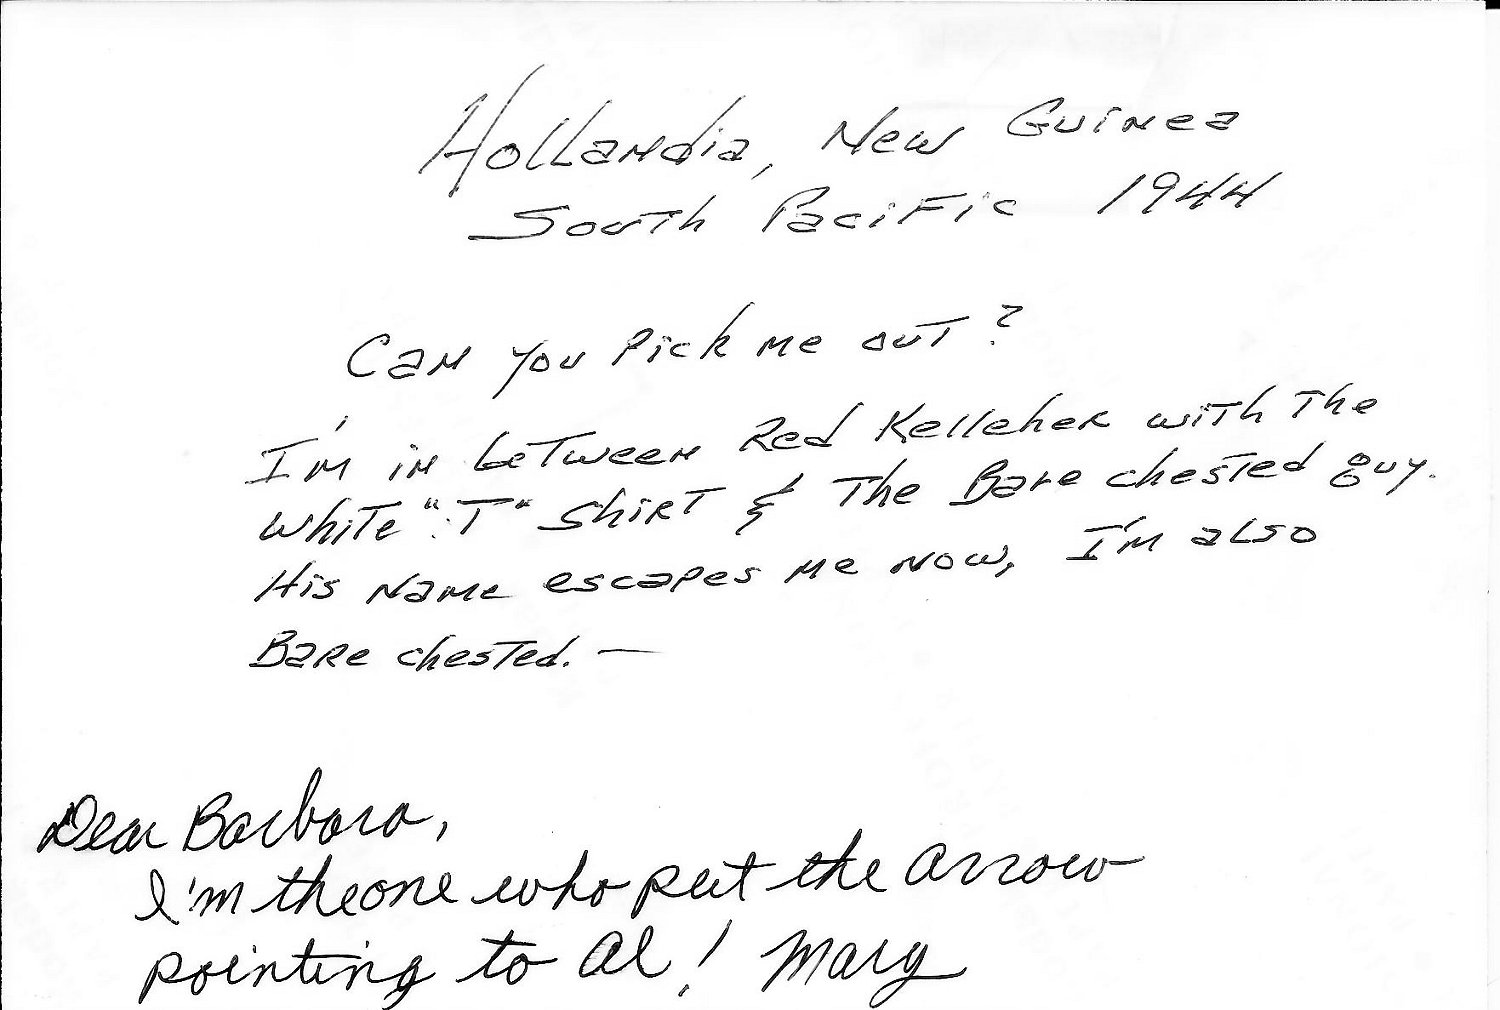 Hollandia, New Guinea
South Pacific 1944
Can you Pick me out?
I'm in between Red Kelleher with the
white "T" shirt & The Bare chested guy.
His name escapes me now, I'm also
Bare chested. —
Dear Barbara,
I'm the one who put the arrow
pointing to Al! Mary